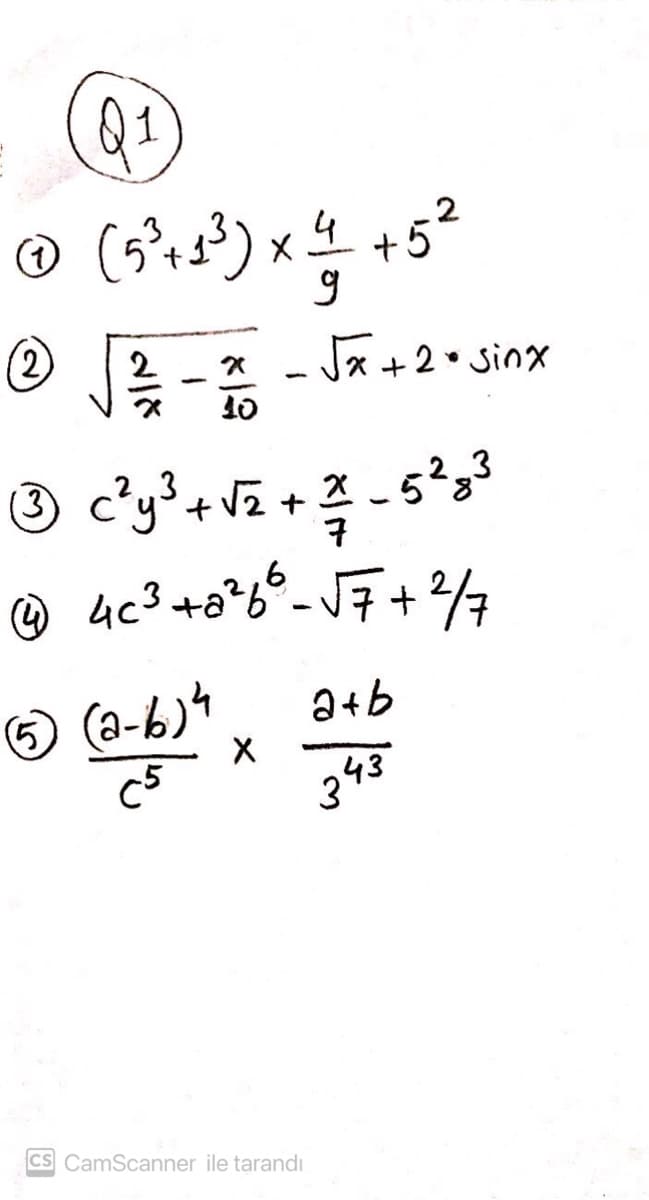 Q1
① (5³+1³) × 4/9 + 5²
② √(2/x - x/10) - √x + 2 • sinx
③ c²y³ + √2 + x/7 - 5²8³
④ 4c³ + a²b⁶ - √7 + 2/7
⑤ (a-b)⁴/c⁵ × a+b/3⁴³
CS CamScanner ile tarandı